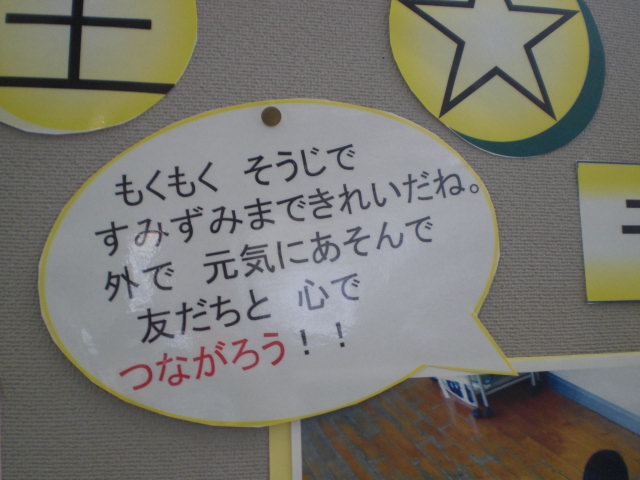 もくもく　そうじで
すみずみまできれいだね。
外で　元気にあそんで
友だちと　心で
つながろう！！